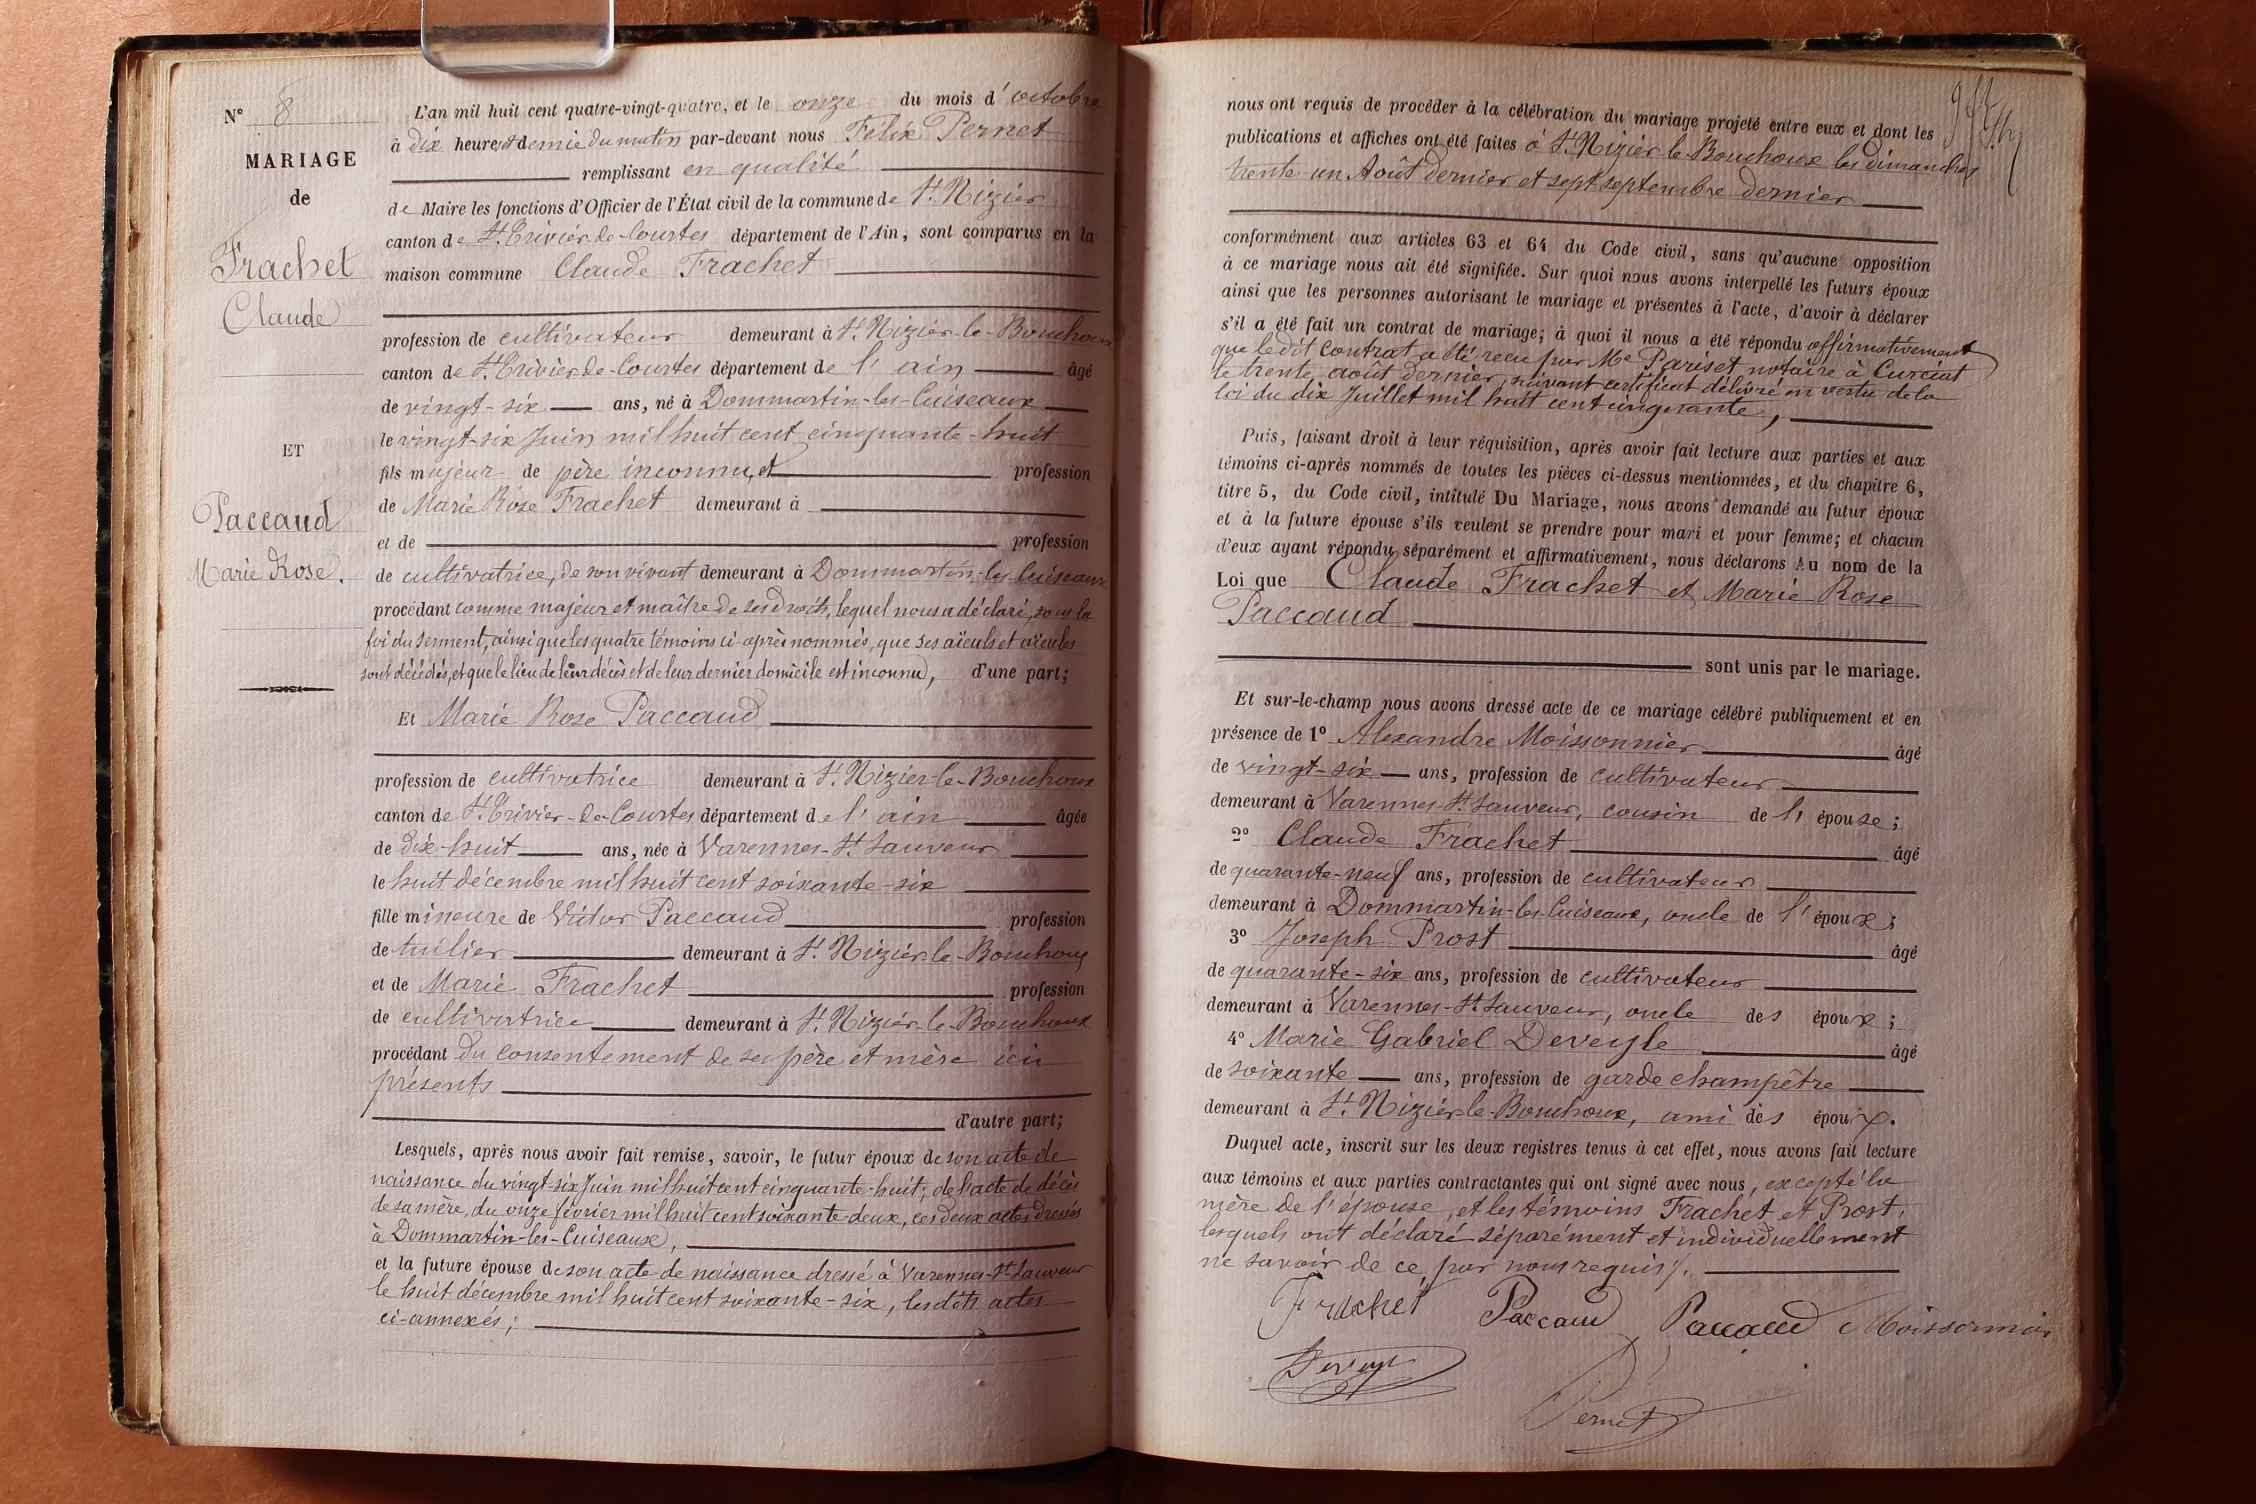 N° 8
MARIAGE
de
Frachet
Claude
ET
Paccaud
Marie Rose.
L'an mil huit cent quatre-vingt-quatre, et le onze du mois d'octobre
à dix heures et demie du matin par-devant nous Félix Pernet
remplissant en qualité
de Maire les fonctions d'Officier de l'État civil de la commune de St. Nizier
canton de St. Trivier-de-Courtes département de l'Ain, sont comparus en la
maison commune Claude Frachet
profession de cultivateur demeurant à St. Nizier-le-Bouchoux
canton de St. Trivier-de-Courtes département de l'ain âgé
de vingt-six ans, né à Dommartin-les-Cuiseaux
le vingt-six Juin mil huit cent cinquante-huit
fils majeur de père inconnu, et profession
de Marie Rose Frachet demeurant à
et de profession
de cultivatrice, de son vivant demeurant à Dommartin-les-Cuiseaux
procédant comme majeur et maître de ses droits, lequel nous a déclaré, sous la
foi du serment, ainsi que les quatre témoins ci-après nommés, que ses aïeuls et aïeules
sont décédés, et que le lieu de leur décès et de leur dernier domicile est inconnu, d'une part;
Et Marie Rose Paccaud
profession de cultivatrice demeurant à St. Nizier-le-Bouchoux
canton de St. Trivier-de-Courtes département de l'ain âgée
de dix-huit ans, née à Varennes-St. Sauveur
le huit décembre mil huit cent soixante-six
fille mineure de Victor Paccaud profession
de tuilier demeurant à St. Nizier-le-Bouchoux
et de Marie Frachet profession
de cultivatrice demeurant à St. Nizier-le-Bouchoux
procédant du consentement de ses père et mère ici
présents
d'autre part;
Lesquels, après nous avoir fait remise, savoir, le futur époux de son acte de
naissance du vingt-six Juin mil huit cent cinquante-huit; de l'acte de décès
de sa mère, du onze février mil huit cent soixante-deux, ces deux actes dressés
à Dommartin-les-Cuiseaux,
et la future épouse de son acte de naissance dressé à Varennes-St. Sauveur
le huit décembre mil huit cent soixante-six, lesdits actes
ci-annexés;
nous ont requis de procéder à la célébration du mariage projeté entre eux et dont les
publications et affiches ont été faites à St. Nizier-le-Bouchoux les dimanches
trente-un Août dernier et sept septembre dernier
conformément aux articles 63 et 64 du Code civil, sans qu'aucune opposition
à ce mariage nous ait été signifiée. Sur quoi nous avons interpellé les futurs époux
ainsi que les personnes autorisant le mariage et présentes à l'acte, d'avoir à déclarer
s'il a été fait un contrat de mariage; à quoi il nous a été répondu affirmativement
que ledit contrat a été reçu par Me Pariset notaire à Curciat
le trente août dernier, suivant certificat délivré en vertu de la
loi du dix Juillet mil huit cent cinquante,
Puis, faisant droit à leur réquisition, après avoir fait lecture aux parties et aux
témoins ci-après nommés de toutes les pièces ci-dessus mentionnées, et du chapitre 6,
titre 5, du Code civil, intitulé Du Mariage, nous avons demandé au futur époux
et à la future épouse s'ils veulent se prendre pour mari et pour femme; et chacun
d'eux ayant répondu séparément et affirmativement, nous déclarons Au nom de la
Loi que Claude Frachet et Marie Rose
Paccaud
sont unis par le mariage.
Et sur-le-champ nous avons dressé acte de ce mariage célébré publiquement et en
présence de 1° Alexandre Moissonnier âgé
de vingt-six ans, profession de cultivateur
demeurant à Varennes-St. Sauveur, cousin de l'épouse;
2° Claude Frachet âgé
de quarante-neuf ans, profession de cultivateur
demeurant à Dommartin-les-Cuiseaux, oncle de l'époux;
3° Joseph Prost âgé
de quarante-six ans, profession de cultivateur
demeurant à Varennes-St. Sauveur, oncle des époux;
4° Marie Gabriel Deveyle âgé
de soixante ans, profession de garde champêtre
demeurant à St. Nizier-le-Bouchoux, ami des époux.
Duquel acte, inscrit sur les deux registres tenus à cet effet, nous avons fait lecture
aux témoins et aux parties contractantes qui ont signé avec nous, excepté la
mère de l'épouse, et les témoins Frachet et Prost,
lesquels ont déclaré séparément et individuellement
ne savoir de ce par nous requis.
Frachet Paccaud Paccaud Moissonnier
Deveyle
Pernet